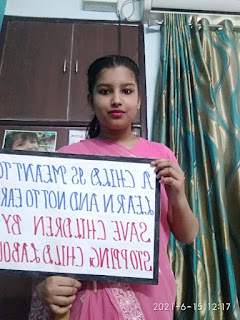 A CHILD IS MEANT TO
LEARN AND NOT TO EAR
SAVE CHILDREN BY
STOPPING CHILD LABOU
2021-6-15 12:17